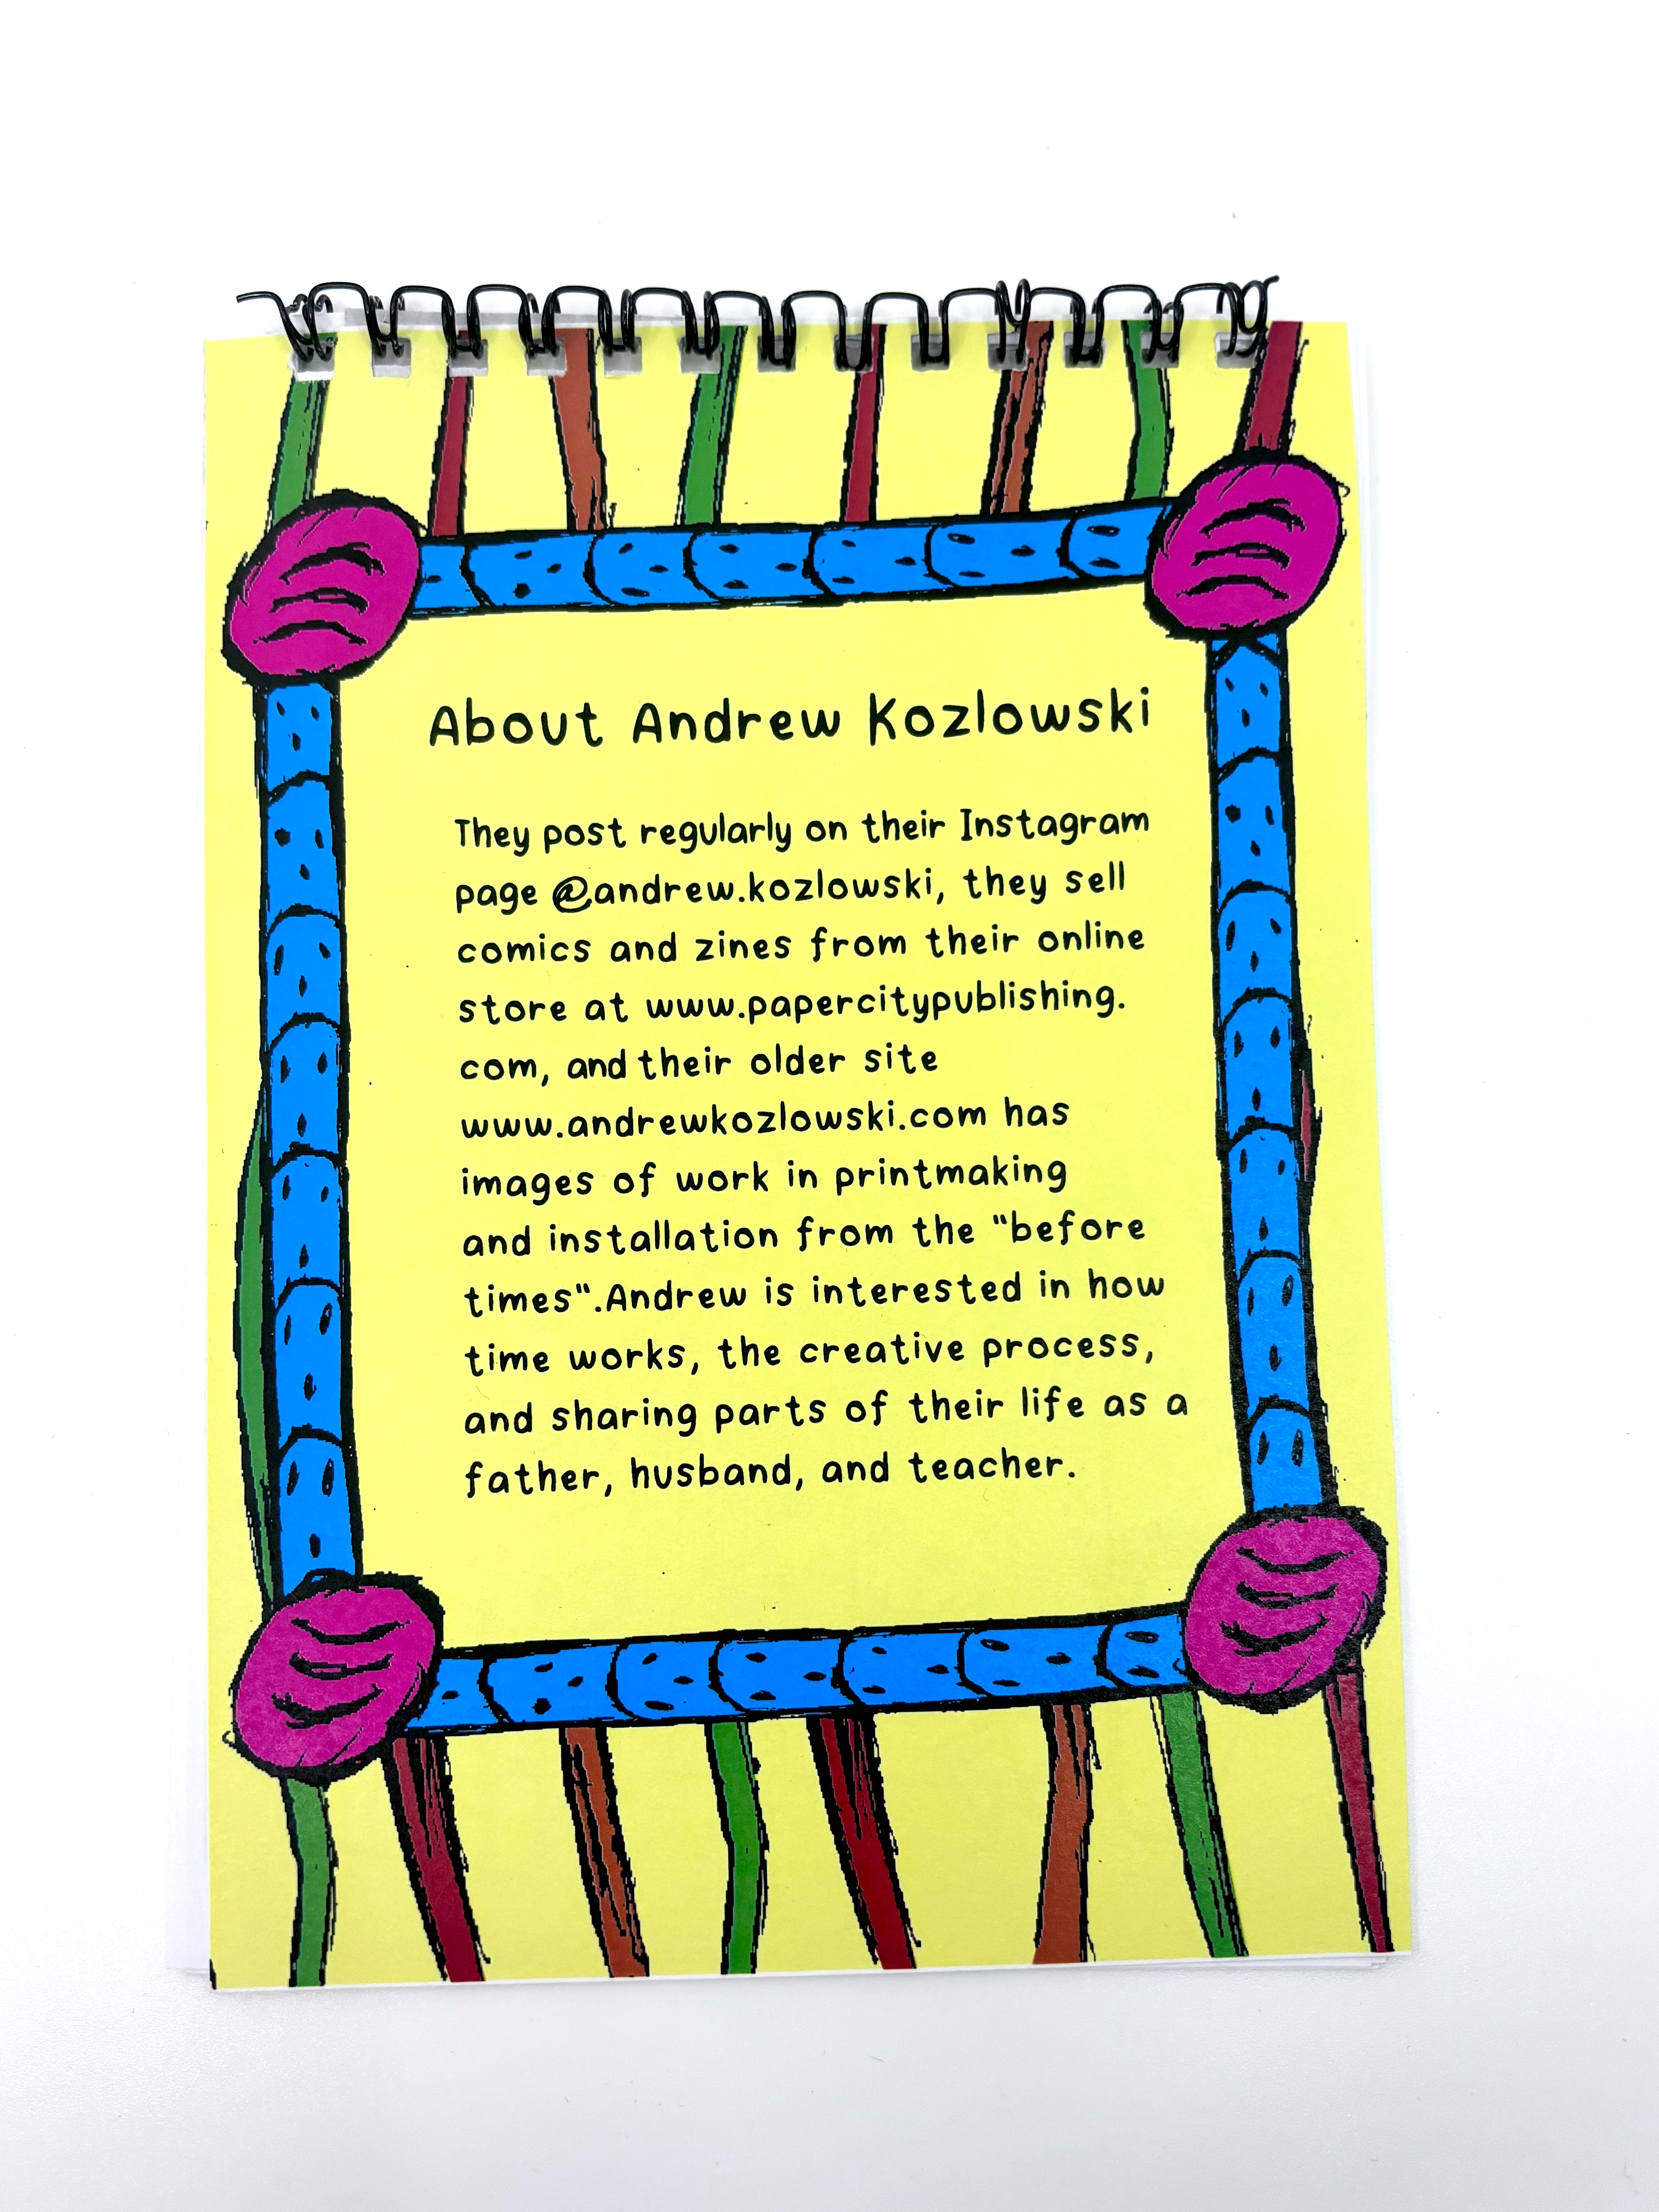 About Andrew Kozlowski
They post regularly on their Instagram
page @andrew.kozlowski, they sell
comics and zines from their online
store at www.papercitypublishing.
com, and their older site
www.andrewkozlowski.com has
images of work in printmaking
and installation from the "before
times".Andrew is interested in how
time works, the creative process,
and sharing parts of their life as a
father, husband, and teacher.